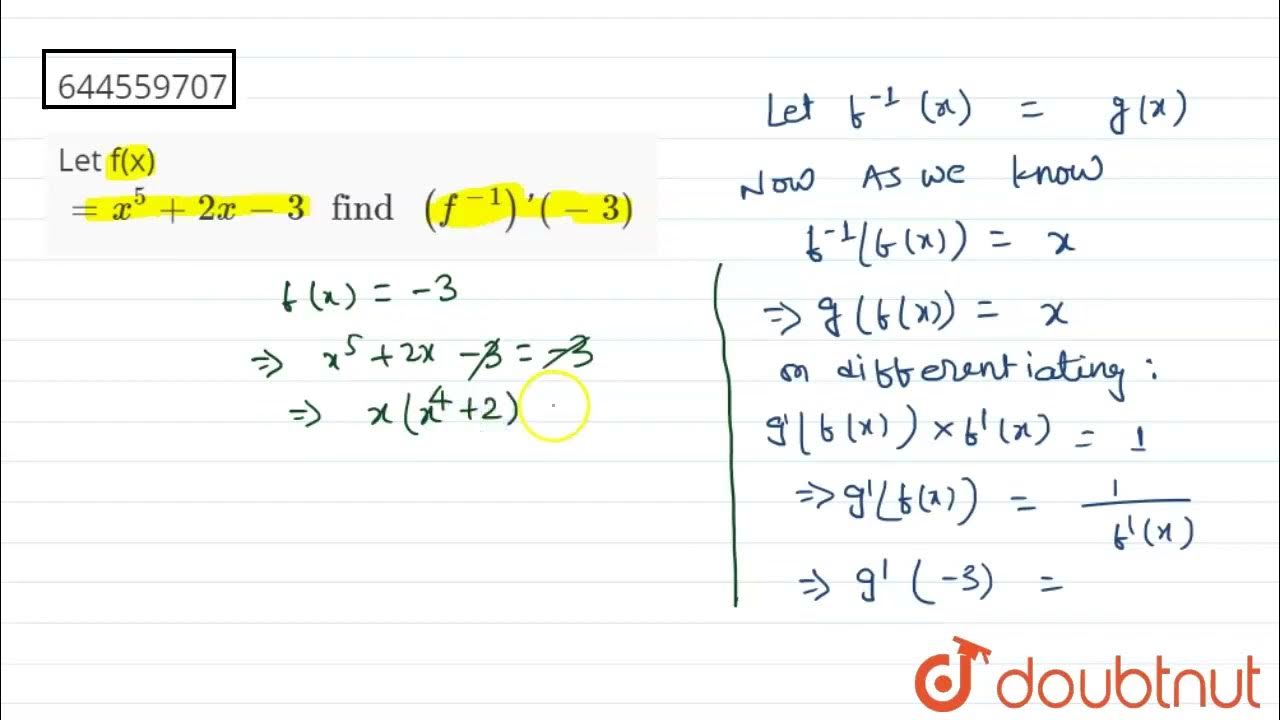 644559707
Let f(x)
= x⁵ + 2x − 3 find (f⁻¹)'(−3)
f(x) = -3
⇒ x⁵ + 2x - 3 = -3
⇒ x(x⁴ + 2)
Let f⁻¹(x) = g(x)
Now As we know
f⁻¹(f(x)) = x
⇒ g(f(x)) = x
on differentiating :
g'(f(x)) × f'(x) = 1
⇒ g'(f(x)) = 1/f'(x)
⇒ g'(-3) =
doubtnut